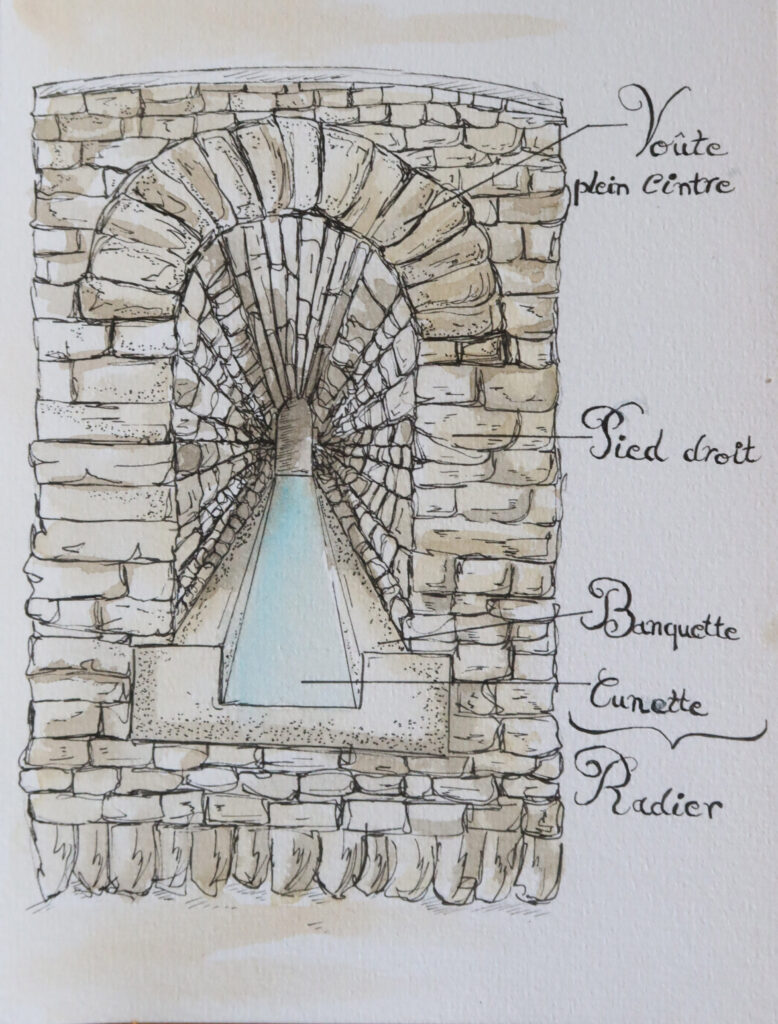 Voûte
plein cintre
Pied droit
Banquette
Cunette
Radier